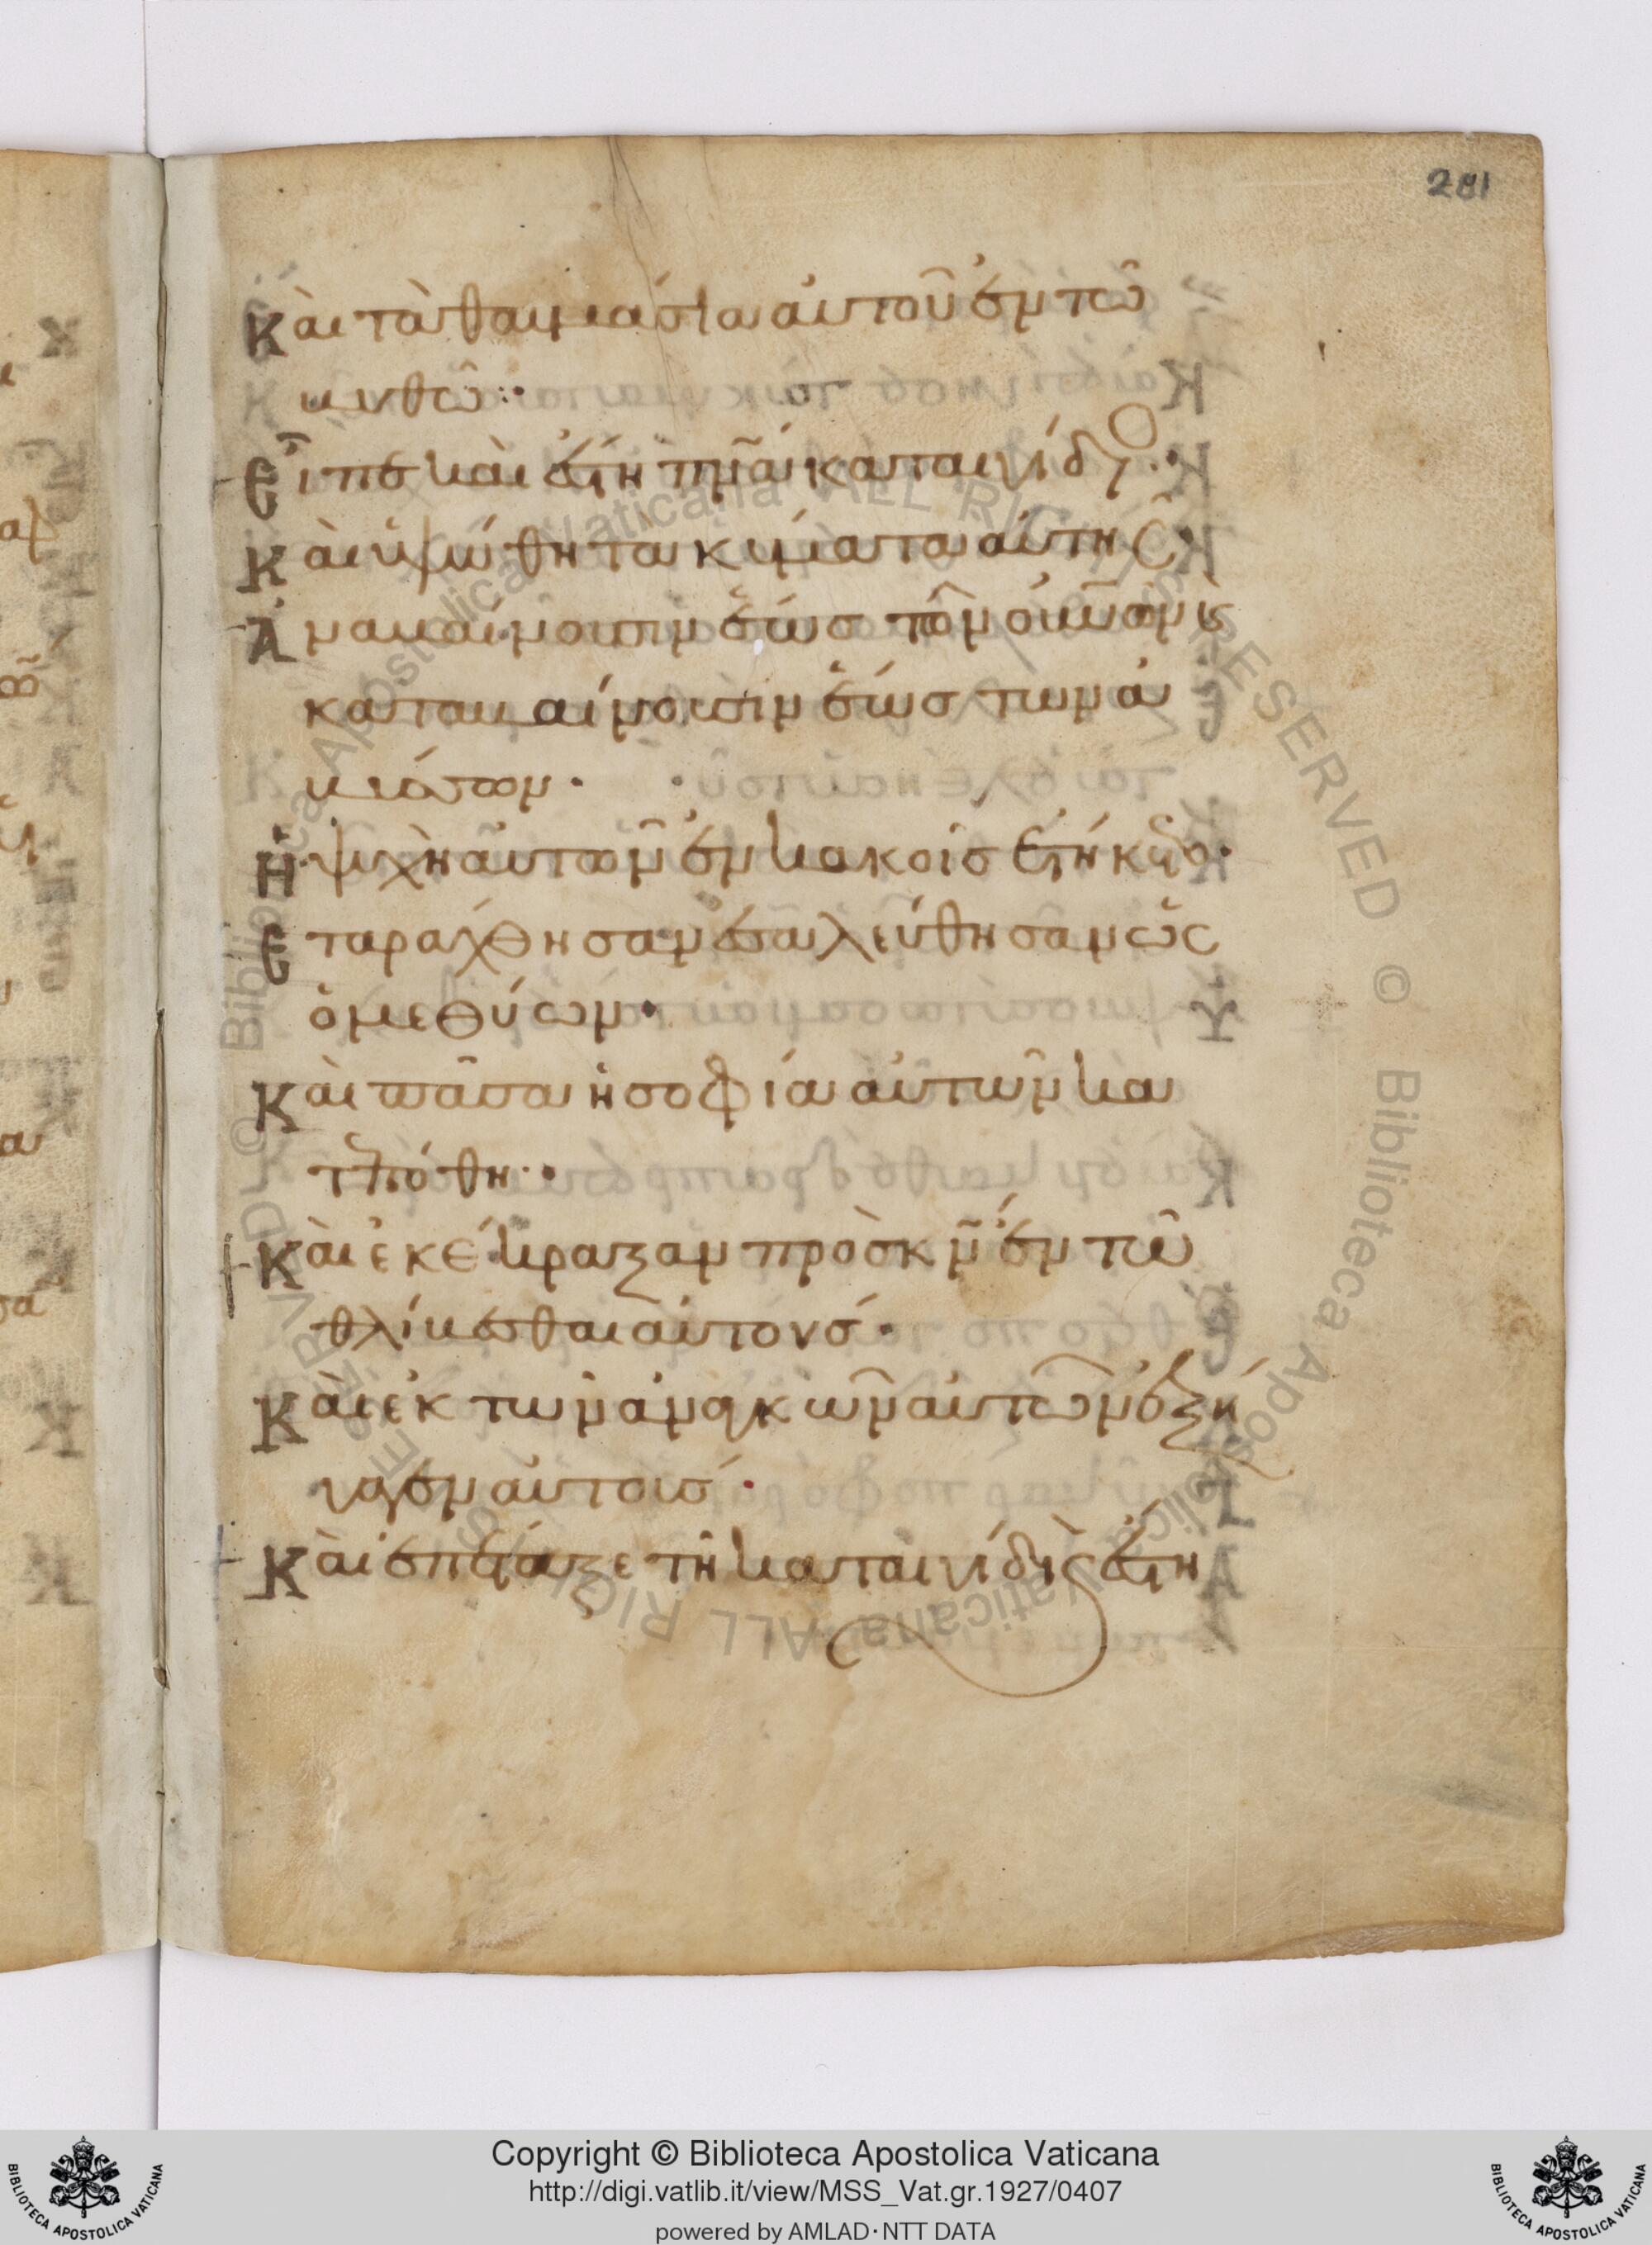 281
Καὶ τὰ θαυμάσια αὐτοῦ ἐν τῶ
βυθῶ:·
Εἶπε καὶ ἔστη πνᾶ καταιγίδος··
Καὶ ὑψώθη τα κύματα αὐτης·
Ἀναβαίνουσιν ἕως τῶν οὐνῶν κ
καταβαίνουσιν ἕως των ἀ
βύσσων·
Ἡ ψυχὴ αὐτῶν ἐν κακοῖσ ἐτήκετο·
Εταράχθησαν ἐσαλεύθησαν ὡς
ὁ μεθύων·
Καὶ πᾶσα ἡ σοφία αὐτῶν κα
τεπόθη··
Καὶ ἐκέκραξαν πρὸσ κν ἐν τῶ
θλίβεσθαι αὐτούσ·
Καὶ ἐκ τῶν ἀναγκῶν αὐτῶν ἐξή
γαγεν αὐτούσ·
Καὶ ἐπέταξε τῆ καταιγίδι κὶ ἔστη
Copyright © Biblioteca Apostolica Vaticana
http://digi.vatlib.it/view/MSS_Vat.gr.1927/0407
powered by AMLAD·NTT DATA
BIBLIOTECA APOSTOLICA VATICANA
BIBLIOTECA APOSTOLICA VATICANA